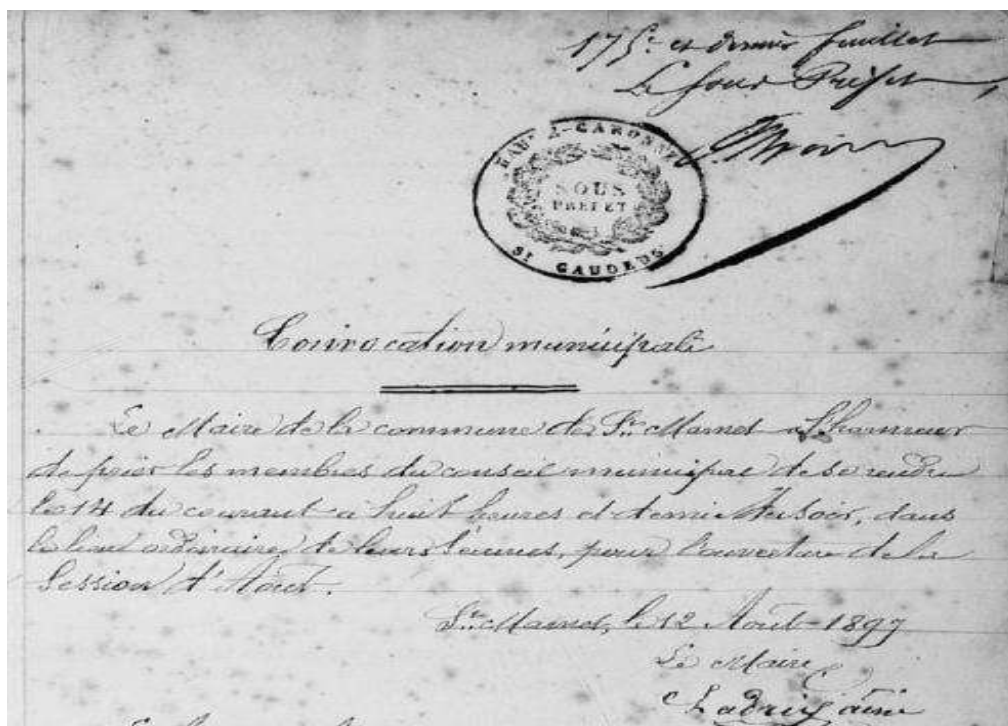 175e et dernier feuillet
Le Sous Préfet,
HAUTE-GARONNE
SOUS
PREFET
St GAUDENS
Convocation municipale
Le Maire de la commune de St. Mamet a l'honneur
de prier les membres du conseil municipal de se rendre
le 14 du courant à huit heures et demie du soir, dans
le lieu ordinaire de leurs séances, pour l'ouverture de la
Session d'Août.
St. Mamet, le 12 Août 1897
Le Maire